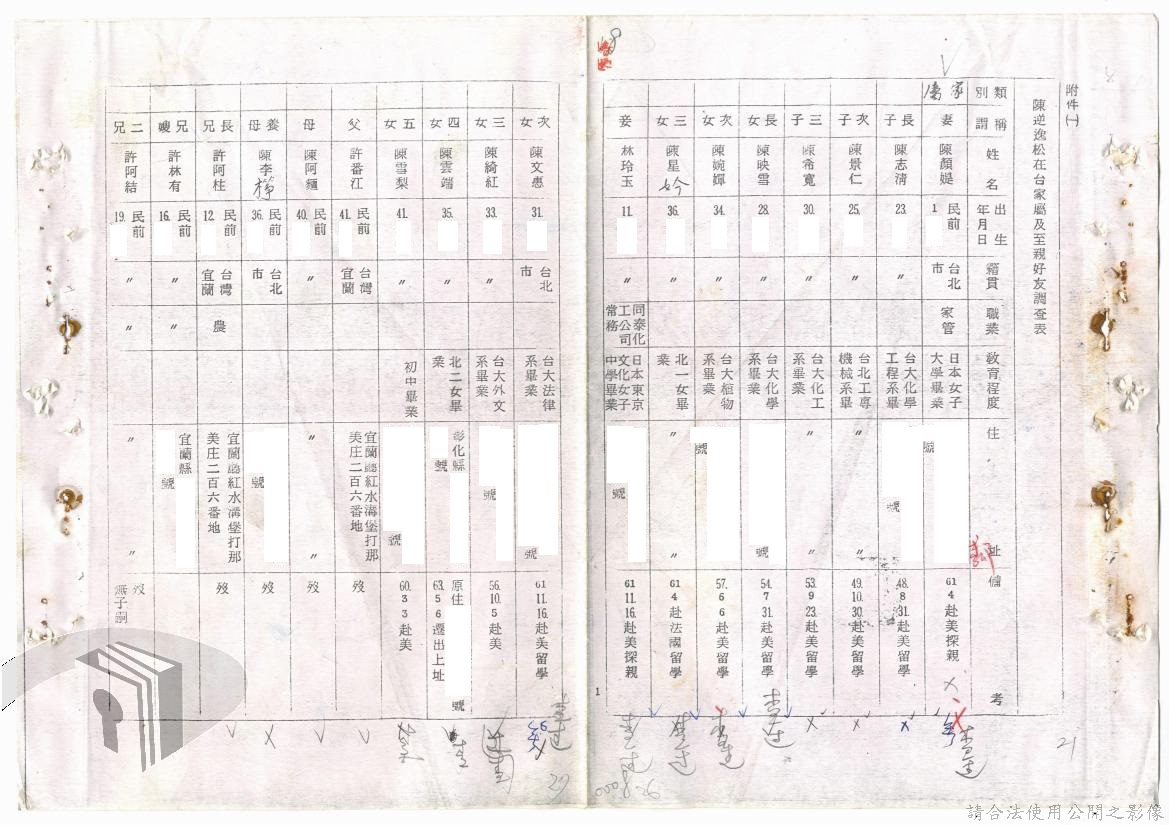 附件㈠
陳逆逸松在台家屬及至親好友調查表
類別 稱謂 姓名 出生年月日 籍貫 職業 教育程度 住址 備考
家屬 妻 陳顏媞 民前1 台北市 家管 日本女子大學畢業 號 61 4 赴美探親
長子 陳志清 23. 〃 台大化學工程系畢 號 48. 8 31. 赴美留學
次子 陳景仁 25. 〃 台北工專機械系畢 〃 〃 49. 10. 30. 赴美留學
三子 陳希寬 30. 〃 台大化工系畢業 〃 〃 53. 9 23. 赴美留學
長女 陳映雪 28. 〃 台大化學系畢業 號 54. 7 31. 赴美留學
次女 陳婉嬋 34. 〃 台大植物系畢業 號 57. 6 6 赴美留學
三女 陳星妗 36. 〃 北一女畢業 〃 〃 61 4 赴法國留學
妾 林玲玉 11. 〃 同泰化工公司常務 日本東京文化女子中學畢業 號 61 11. 16. 赴美探親
1
次女 陳文惠 31. 台北市 台大法律系畢業 號 61 11. 16. 赴美留學
三女 陳綺紅 33. 〃 台大外文系畢業 號 56. 10. 5 赴美
四女 陳雲端 35. 〃 北二女畢業 彰化縣 號 原住 號 63. 5 6 遷出上址
五女 陳雪梨 41. 〃 初中畢業 號 60. 3 3 赴美
父 許番江 民前41. 台灣宜蘭 宜蘭廳紅水溝堡打那美庄二百六番地 歿
母 陳阿緬 民前40. 〃 〃 〃 歿
養母 陳李 民前36. 台北市 號 歿
長兄 許阿柱 民前12. 台灣宜蘭 農 宜蘭廳紅水溝堡打那美庄二百六番地 歿
兄嫂 許林有 民前16. 〃 〃 宜蘭縣 號
二兄 許阿結 民前19. 〃 〃 〃 〃 歿 無子嗣
21
請合法使用公開之影像